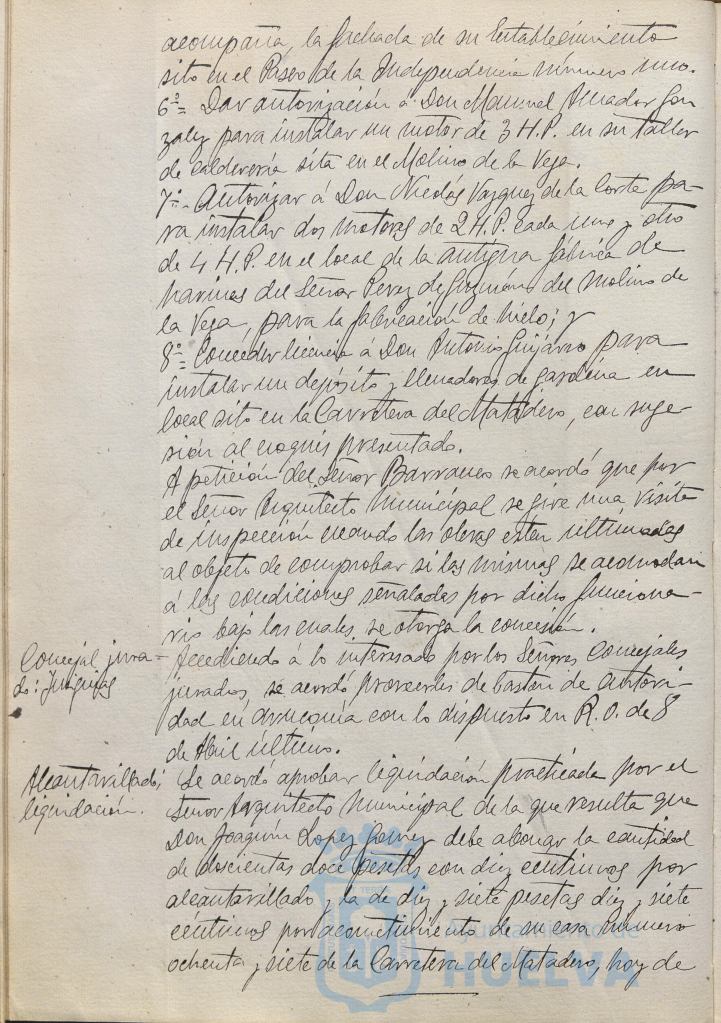 acompaña, la fachada de su Establecimiento
sito en el Paseo de la Independencia número uno.
6º= Dar autorización á Don Manuel Amador Gon
zalez para instalar un motor de 3 H.P. en su taller
de calderería sita en el Molino de la Vega.
7º- Autorizar á Don Nicolás Vazquez de la Corte pa-
ra instalar dos motores de 2 H.P. cada uno y otro
de 4 H.P. en el local de la antigua fábrica de
harinas del Señor Perez de Guzmán del Molino de
la Vega, para la fabricación de hielo; y
8º= Conceder licencia á Don Antonio Guijarro para
instalar un depósito y llenadores de gasolina en
local sito en la Carretera del Matadero, con suge-
sión al croquis presentado.
A petición del Señor Barranco se acordó que por
el Señor Arquitecto Municipal se gire una visita
de inspección cuando las obras esten ultimadas
al objeto de comprobar si las mismas se acomodan
á las condiciones señaladas por dicho funciona-
rio bajo las cuales se otorga la concesión.
Concejal jura-
do: Insignias
Accediendo á lo interesado por los Señores Concejales
jurados, se acordó proveerles de bastón de autori-
dad en armonía con lo dispuesto en R.O. de 8
de Abril último.
Alcantarillado;
liquidación.
Se acordó aprobar liquidación practicada por el
Señor Arquitecto Municipal de la que resulta que
Don Joaquín Lopez Gomez debe abonar la cantidad
de doscientas doce pesetas con diez centimos por
alcantarillado y la de diez y siete pesetas diez y siete
céntimos por acometimiento de su casa número
ochenta y siete de la Carretera del Matadero, hoy de
Ayuntamiento de
HUELVA